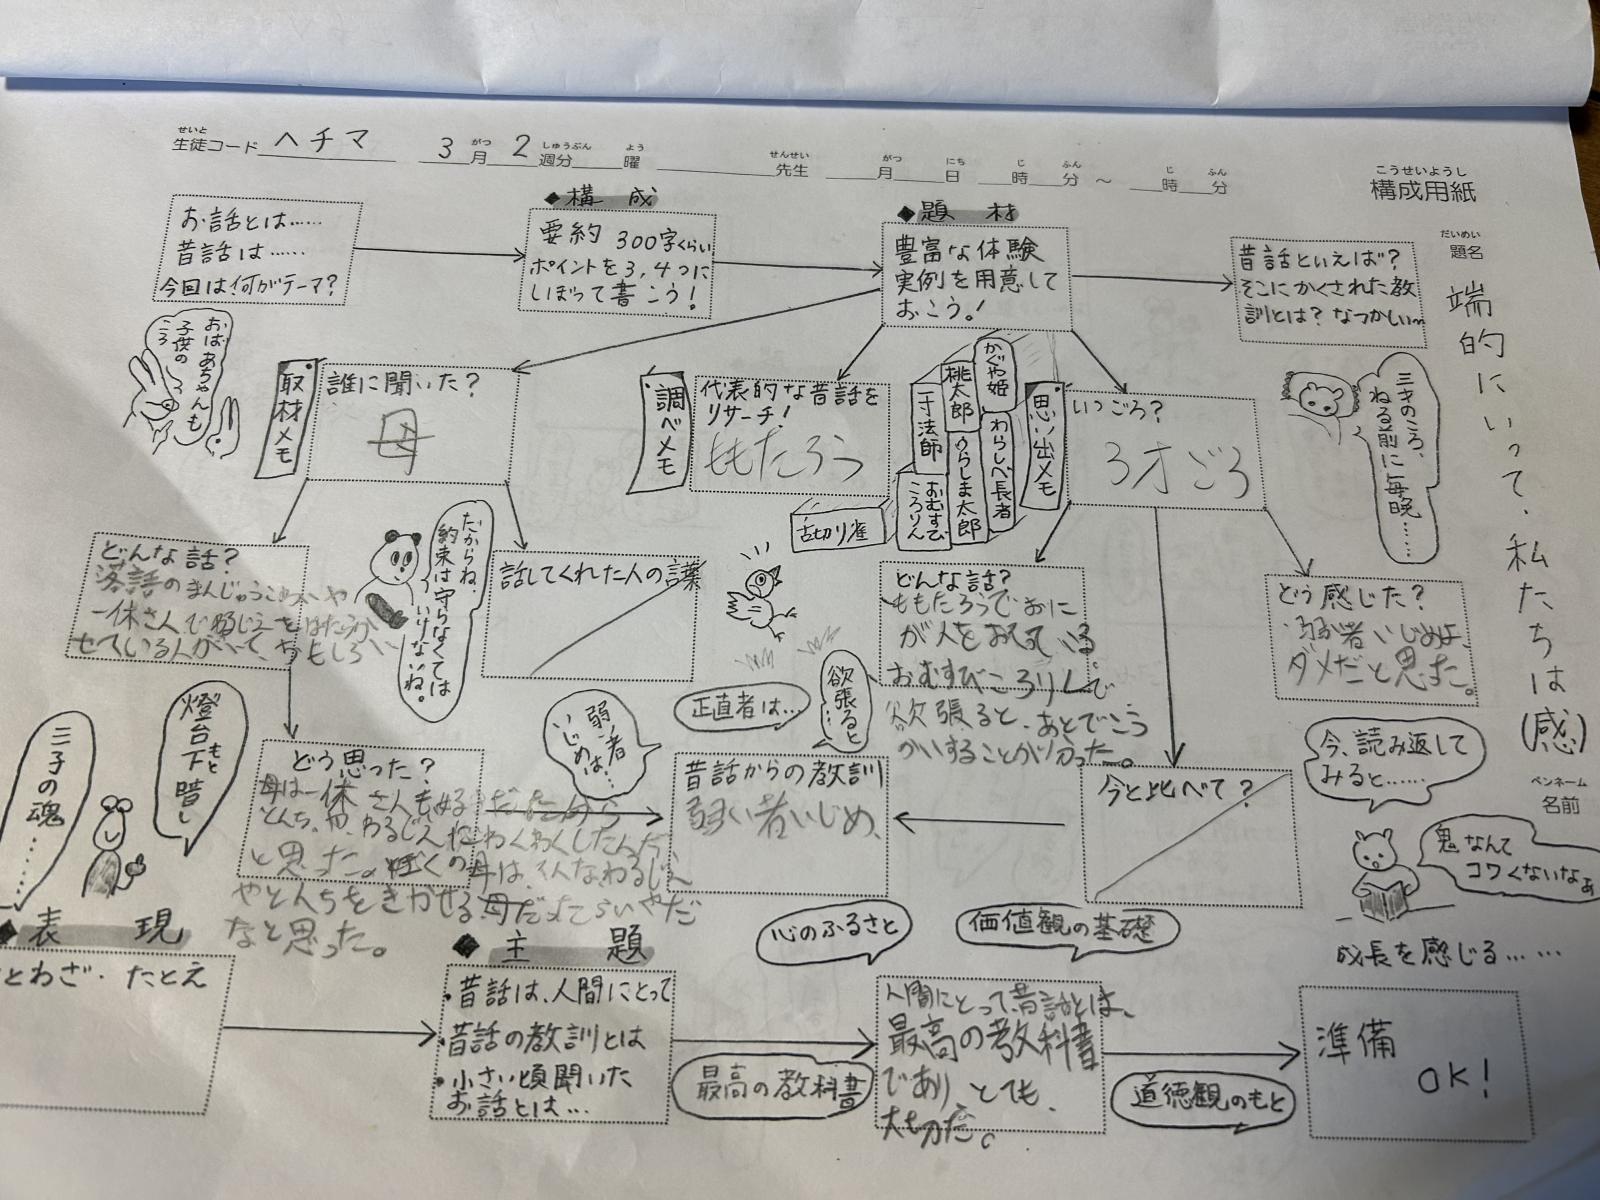 せいと
生徒コード ヘチマ 3 がつ 月 2 しゅうぶん 週分 よう 曜 せんせい 先生 がつ 月 にち 日 じ 時 ふん 分 ～ じ 時 ふん 分
こうせいようし
構成用紙
だいめい
題名
端的にいって、私たちは(感)
ペンネーム
名前
お話とは……
昔話は……
今回は何がテーマ?
◆構 成
要約 300字くらい
ポイントを3,4つに
しぼって書こう!
◆題 材
豊富な体験
実例を用意して
おこう!
昔話といえば?
そこにかくされた教
訓とは? なつかしい〜
おばあちゃんも
子供の
ころ
取材メモ
誰に聞いた?
母
調べメモ
代表的な昔話を
リサーチ!
ももたろう
かぐや姫
桃太郎
一寸法師
わらしべ長者
うらしま太郎
おむすび
ころりん
舌切り雀
思い出メモ
いつごろ?
3才ごろ
三才のころ、
ねる前に毎晩……
どんな話?
落語のまんじゅうこわいや
一休さんで
せている人がいて、おもしろい
だからね、
約束は守らなくては
いけないね。
話してくれた人の言葉
どんな話?
ももたろうでおに
が人を
おむすびころりんで
欲張ると、あとでこう
かいすることが分かった。
どう感じた?
弱い者いじめは、
ダメだと思った。
燈台下暗し
もと
三子の魂……
どう思った?
母は一休さんも
とんち、や、わるじえに わくわくしたんだ
と思った。ぼくの母は、そんなわるじえ
やとんちをきかせる
なと思った。
弱い者
いじめは…
正直者は…
欲張ると
…
昔話からの教訓
弱い者いじめ、
今と比べて?
今、読み返して
みると……
鬼なんて
コワくないなぁ
成長を感じる……
心のふるさと
価値観の基礎
◆表 現
とわざ・たとえ
◆主 題
・昔話は、人間にとって
・昔話の教訓とは
・小さい頃聞いた
お話とは…
最高の教科書
人間にとって昔話とは、
最高の教科書
であり、とても、
大切だ。
道徳観のもと
準備
OK!